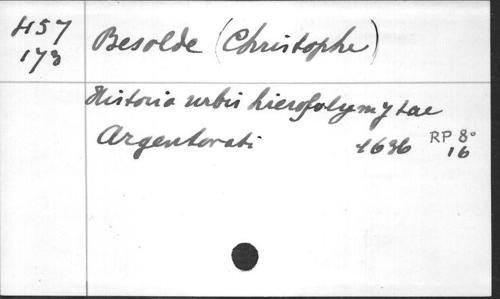 H57
173
Besolde (Christophe)
Historia urbis hierosolymytae
Argentorati 1636 RP 8°
16